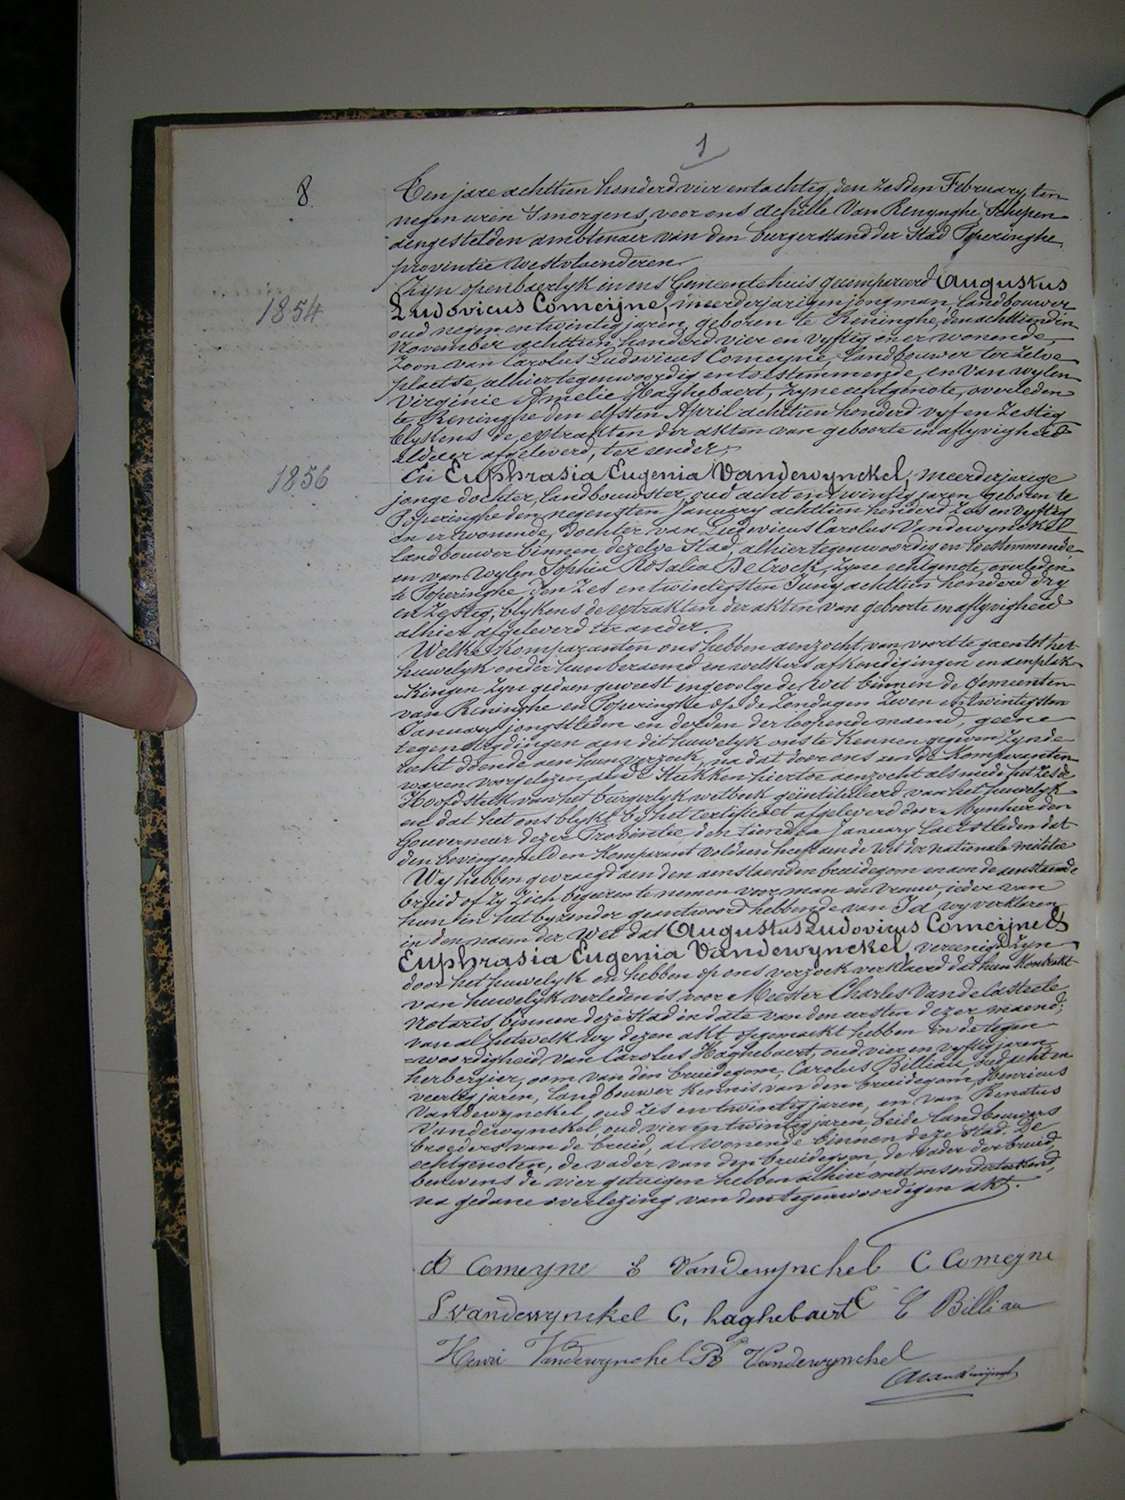 1
8.
Ten jare achttien honderd vier en tachtig, den zesden February, ten
negen uren 's morgens, voor ons Achille Van Renynghe, Schepen
aengestelden ambtenaer van den burgerstand der Stad Poperinghe,
provintie Westvlaenderen.
Zyn openbaerlyk in ons Gemeentehuis gecompareerd Augustus
1854
Ludovicus Comeijne, meerderjarigen jongman, landbouwer
oud negen en twintig jaren, geboren te Reninghe, den achttienden
November achttien honderd vier en vyftig en er wonende,
Zoon van Carolus Ludovicus Comeyne, landbouwer ter zelve
plaetse, alhier tegenwoordig en toestemmende, en van wylen
Virginie Amelie Haghebaert, zyne echtgenote, overleden
te Reninghe den elfsten April achttien honderd vyf en zestig
blykens de extrakten der akten van geboorte en aflyvigheid
aldaer afgeleverd, ter eender,
1856
En Euphrasia Eugenia Vandewynckel, meerderjarige
jonge dochter, landbouwster, oud acht en twintig jaren, geboren te
Poperinghe den negensten January achttien honderd zes en vyftig
en er wonende, Dochter van Ludovicus Carolus Vandewynckel
landbouwer binnen dezelve Stad, alhier tegenwoordig en toestemmende
en van wylen Sophia Rosalia Decrock, zyne echtgenote, overleden
te Poperinghe den zes en twintigsten Juny achttien honderd dry
en zestig, blykens de extrakten der akten van geboorte en aflyvigheid
alhier afgeleverd ter ander.
Welke komparanten ons hebben aenzocht van voort te gaen tot het
huwelyk onder hun beraemd en welkers afkondigingen en aenplak-
kingen zyn gedaen geweest ingevolge de Wet binnen de Gemeenten
van Reninghe en Poperinghe op de Zondagen zeven en twintigsten
January jongstleden en derden der loopende maend, geene
tegenstrydingen aen dit huwelyk ons te kennen gegeven zynde
recht doende aen hun verzoek, na dat door ons aen de komparanten
waren voorgelezen de Stukken hiertoe aenzocht als mede het zesde
Hoofdstuk van het burgerlyk wetboek geïntituleerd van het huwelyk
en dat het ons blykt by het certificaet afgeleverd door Mynheer den
Gouverneur dezer Provintie den tienden January laetstleden dat
den bovengemelden komparant voldaen heeft aen de wet der nationale militie
Wy hebben gevraegd aen den aenstaenden bruidegom en aen de aenstaende
bruid of zy zich begeeren te nemen voor man en vrouw, ieder van
hun in het byzonder geantwoord hebbende van Ja, wy verklaren
in den naem der Wet dat Augustus Ludovicus Comeijne &
Euphrasia Eugenia Vandewynckel, vereenigd zyn
door het huwelyk en hebben op ons verzoek verklaerd dat hun kontrakt
van huwelyk verleden is voor Meester Charles Vandecasteele
Notaris binnen deze Stad in date van den eersten dezer maend;
van al hetwelk wy dezen akt opgemaekt hebben in de tegen-
woordigheid van Carolus Haghebaert, oud vier en vyftig jaren
herbergier, oom van den bruidegom, Carolus Billiau, oud acht en
veertig jaren, landbouwer kennis van den bruidegom, Henricus
Vandewynckel, oud zes en twintig jaren, en van Renatus
Vandewynckel, oud vier en twintig jaren, beide landbouwers
broeders van de bruid, al wonende binnen deze Stad. De
echtgenoten, de vader van den bruidegom, de vader der bruid,
benevens de vier getuigen hebben alhier met ons onderteekend,
na gedane overlezing van den tegenwoordigen akt.
A Comeyne E Vandewynckel C Comeyne
L Vandewynckel C, haghebaert C Billiau
Henri Vandewynckel R Vandewynckel